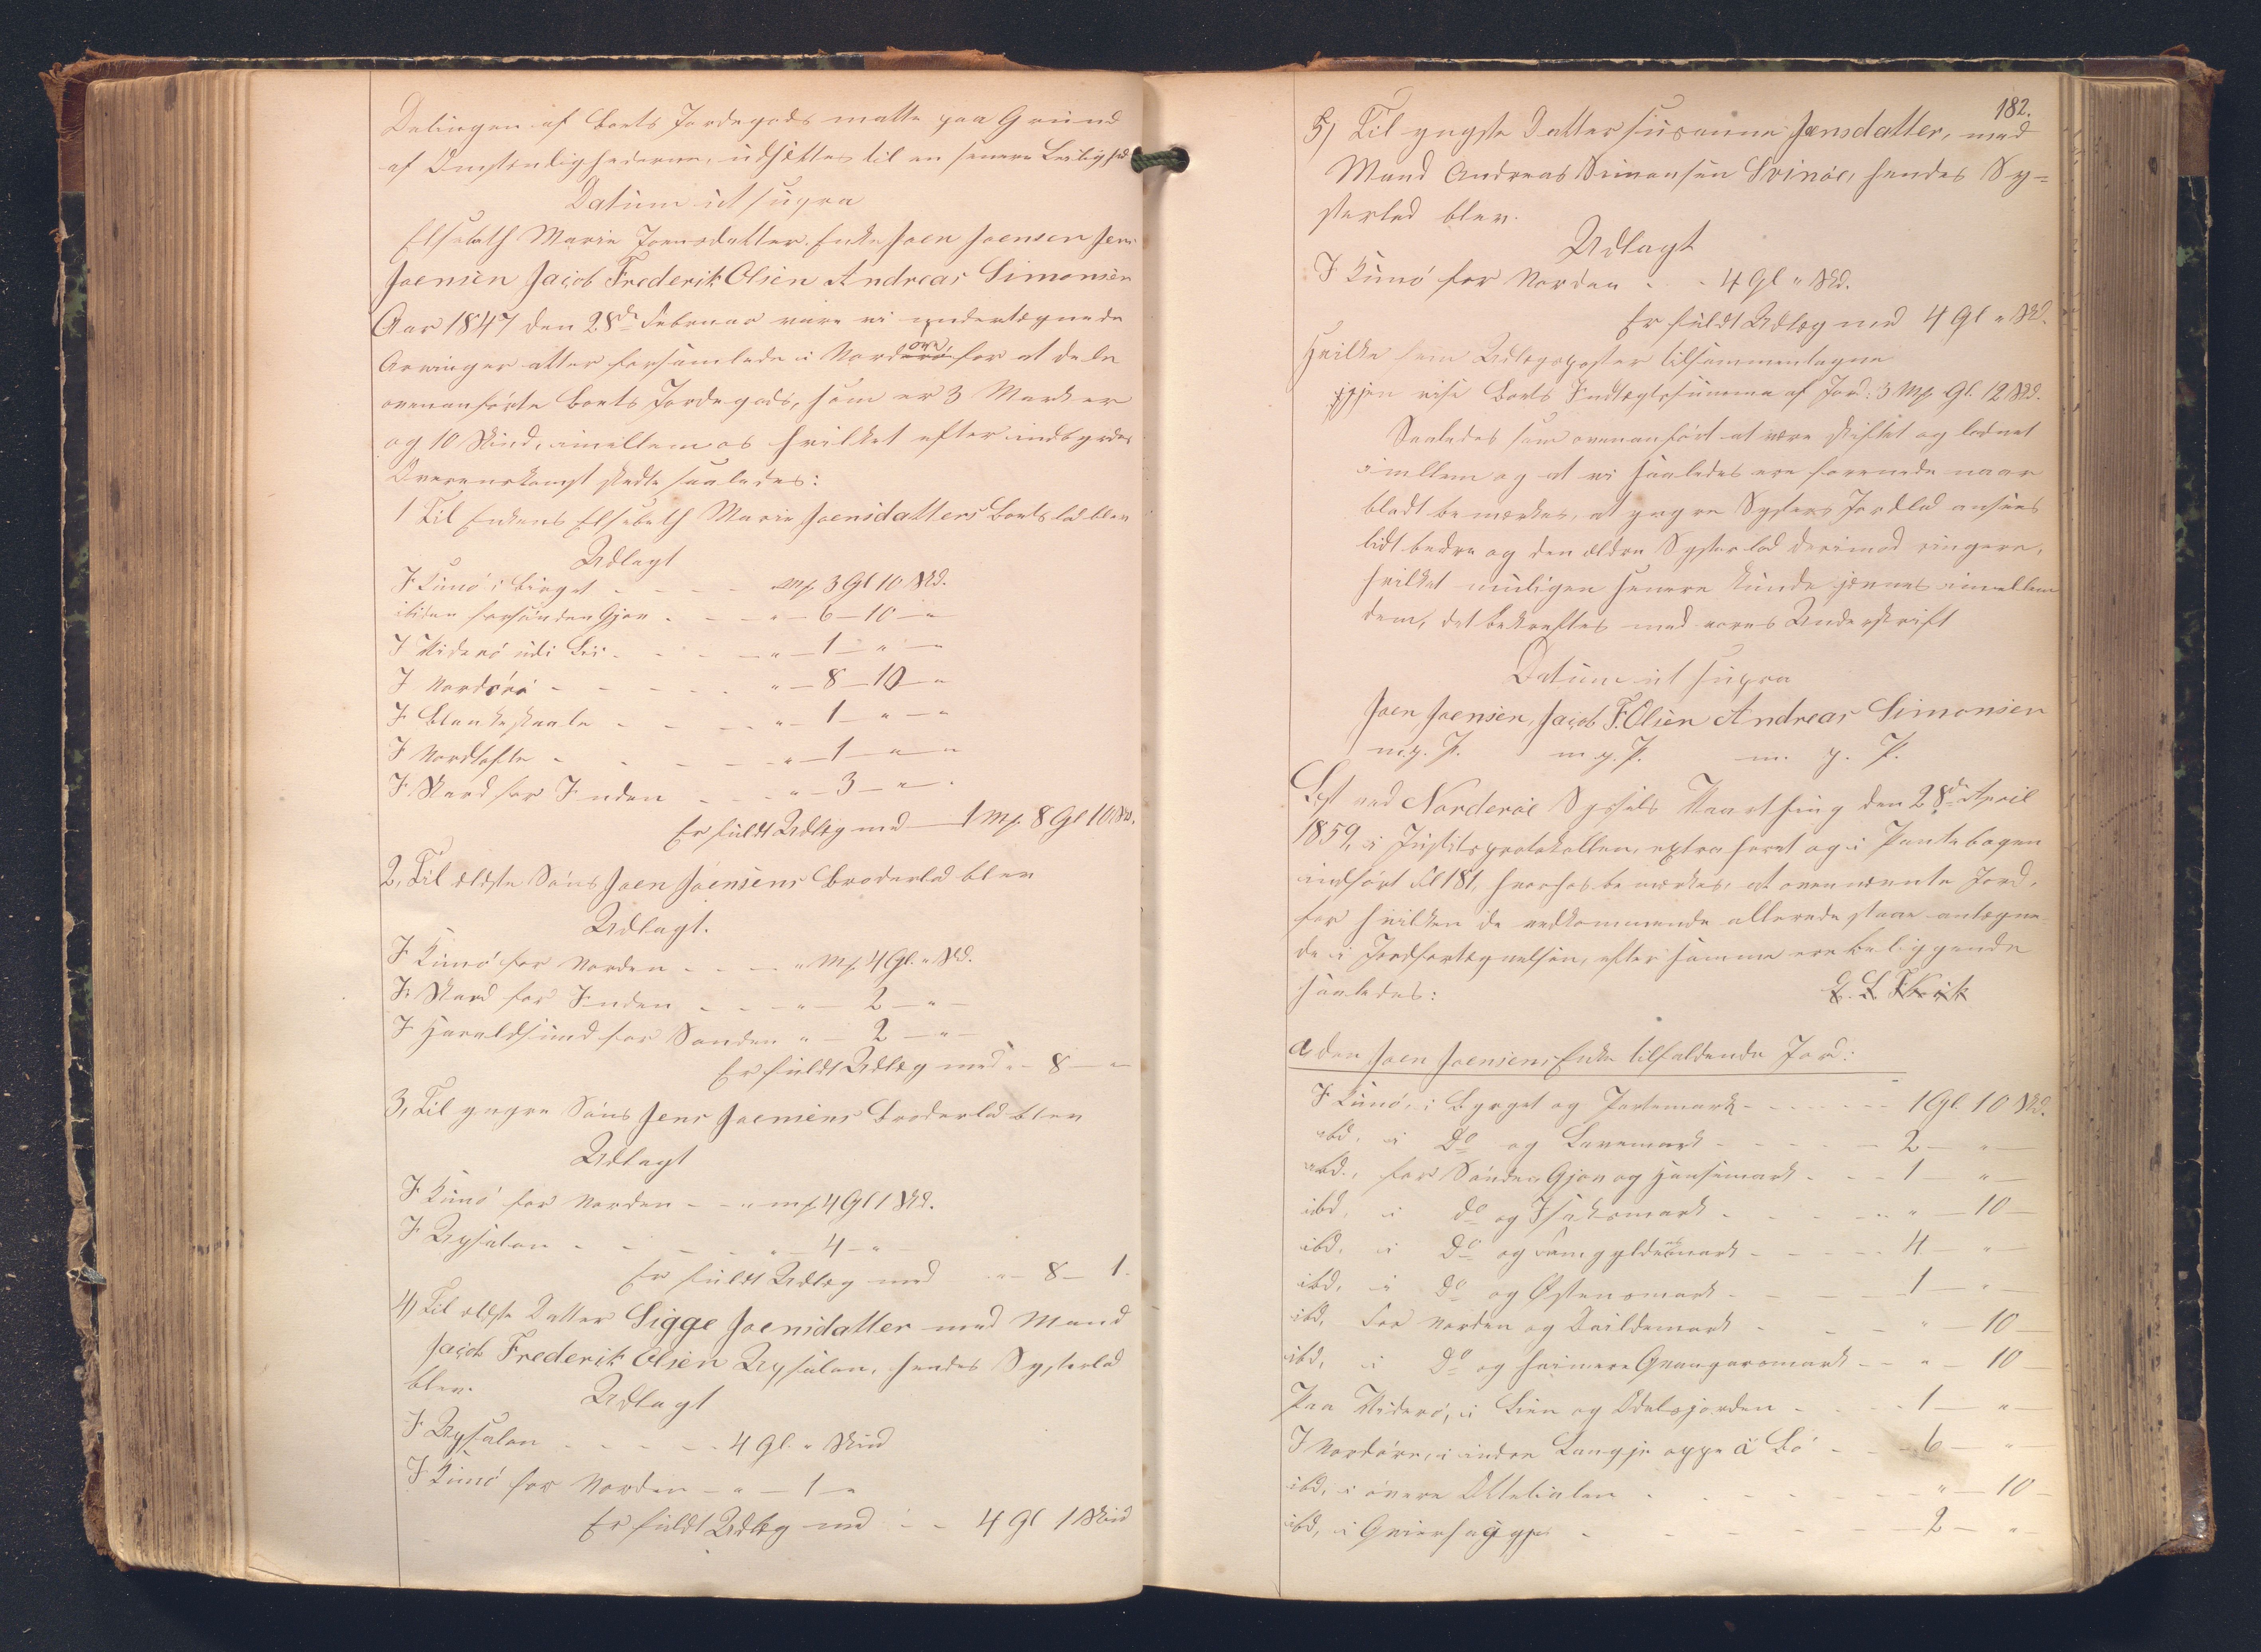 Delingen af Boets Jordegods matte paa Grund
af Omstendighederne, udsættes til en senere Leilighed
Datum ut supra
Elsebeth Marie Joensdatter Enke Joen Joensen Jens
Joensen Jacob Frederik Olsen Andreas Simonsen
Aar 1847 den 28de Februar vare vi undertegnede
Arvinger atter forsamlede i Norderöre for at dele
ovenanförte Boets Jordegods, som er 3 Marker
og 10 Skind, imellem os hvilket efter indbyrdes
Overenskomst skedte saaledes:
1 Til Enkens Elsebeth Marie Joensdatters Boelslod blev
Udlagt
I Kunö i Birget - - - Mk 3 Gl 10 Skd.
ibidem forsönden Gjov - - " - 6 - 10 - "
I Viderö udi Lii - - - " - 1 - " - "
I Nordöre - - - - " - 8 - 10 - "
I Blankeskaale - - - " - 1 - " - "
I Nordtofte - - - - " - 1 - " - "
I Skard for Inden - - " - 3 - " -
Er fuldt Udlæg med - 1 Mk. 8 Gl 10 Skd.
2, Til ældste Söns Joen Joensens Broderlod blev
Udlagt.
I Kunö for Norden - - - " Mk. 4 Gl. " Skd.
I Skard for Inden - - " - 2 - " -
I Haraldsund for Sonden " - 2 - " -
Er fuldt Udlæg med " - 8 - "
3, Til yngre Söns Jens Joensens Broderlod blev
Udlagt
I Kunö for Norden - - " mk 4 Gl 1 Skd.
I Qysalen - - - - " - 4 - "
Er fuldt Udlæg med " - 8 - 1.
4) Til eldste Datter Sigge Joensdatter med Mand
Jacob Frederik Olsen Qysalen, hendes Systerlod
blev.
Udlagt
I Qysalen - - - - - 4 Gl. " Skind
I Kunö for Norden - " - 1 "
Er fuldt Udlæg med - - 4 Gl 1 Skind
182.
5) Til yngste Datter Susanne Jensdatter, med
Mand Andreas Simonsen Svinöe, hendes Sy=
sterlod blev.
Udlagt
I Kunö for Norden - - 4 Gl " Skd.
Er fuldt Udlæg med 4 Gl " Skd.
Hvilke fem Udlægsposter tilsammentagne
igjen vise Boets Indtægtssumma af Jord: 3 Mk. Gl. 12 Skd.
Saaledes som ovenanfört at være skiftet og lodnet
imellem og at vi saaledes ere forenede naar
blodt bemærkes, at yngre Systers Jordlod ansees
lidt bedre og den ældre Systerlod derimod ringere,
hvilket muligen senere kunde jævnes imellem
dem, det bekræftes med vores Underskrift
Datum ut supra
Joen Joensen, Jacob F. Olsen Andreas Simonsen
m. p. P. m. p. P. m. p. P.
Lyst ved Norderöe Syssels Vaarthing den 28de April
1859, i Justitsprotokollen, extraheret og i Pantebogen
indfört Fol 181, hvorhos bemærkes, at ovennævnte Jord,
for hvilken de vedkommende allerede staae antegne-
de i Jordfortegnelsen, efter samme ere beliggende
saaledes:
a, den Joen Joensens Enke tilfaldende Jord:
I Kunö, i Byrget og Partemark - - - - 1 Gl. 10 Skd.
ibd, i Do og Lavemark - - - - - 2 - " -
ibd., for Sönden Gjov og Hansemark - - - 1 - " -
ibd, i do og Isaksmark - - - - " - 10 -
ibd, i Do og Famgyldesmark - - - - 4 " -
ibd, i Do og Östensmark - - - - 1 - " -
ibd, for Norden og Kuildemark - - - " - 10 -
ibd, i Do og heimere Qvangaremark - - " - 10 -
Paa Viderö, i Lien og Odelsjorden - - - - 1 - " -
I Nordöre, i indre Langje oppe á Bö - - - 6 - " -
ibd, i övere Ottelialen - - - - - " - 10 -
ibd, i - - - - - - 2 - " -